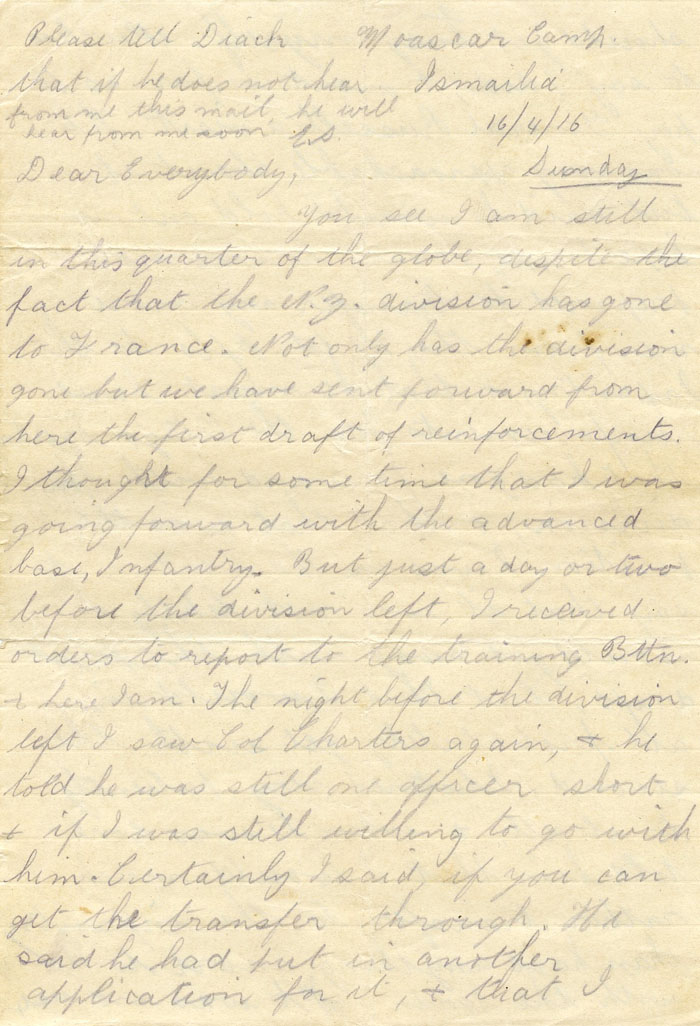 Please tell Diack
that if he does not hear
from me this mail, he will
hear from me soon
Moascar Camp.
Ismailia
16/4/16
Sunday
Dear Everybody,
You see I am still
in this quarter of the globe, despite the
fact that the N.Z. division has gone
to France. Not only has the division
gone but we have sent forward from
here the first draft of reinforcements.
I thought for some time that I was
going forward with the advanced
base, Infantry. But just a day or two
before the division left, I received
orders to report to the training Bttn.
& here I am. The night before the division
left I saw Col Charters again, & he
told he was still one officer short
& if I was still willing to go with
him. Certainly I said, if you can
get the transfer through. He
said he had put in another
application for it, & that I